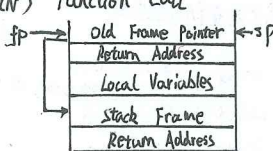 function call
fp → Old Frame Pointer ← sp
Return Address
Local Variables
Stack Frame
Return Address